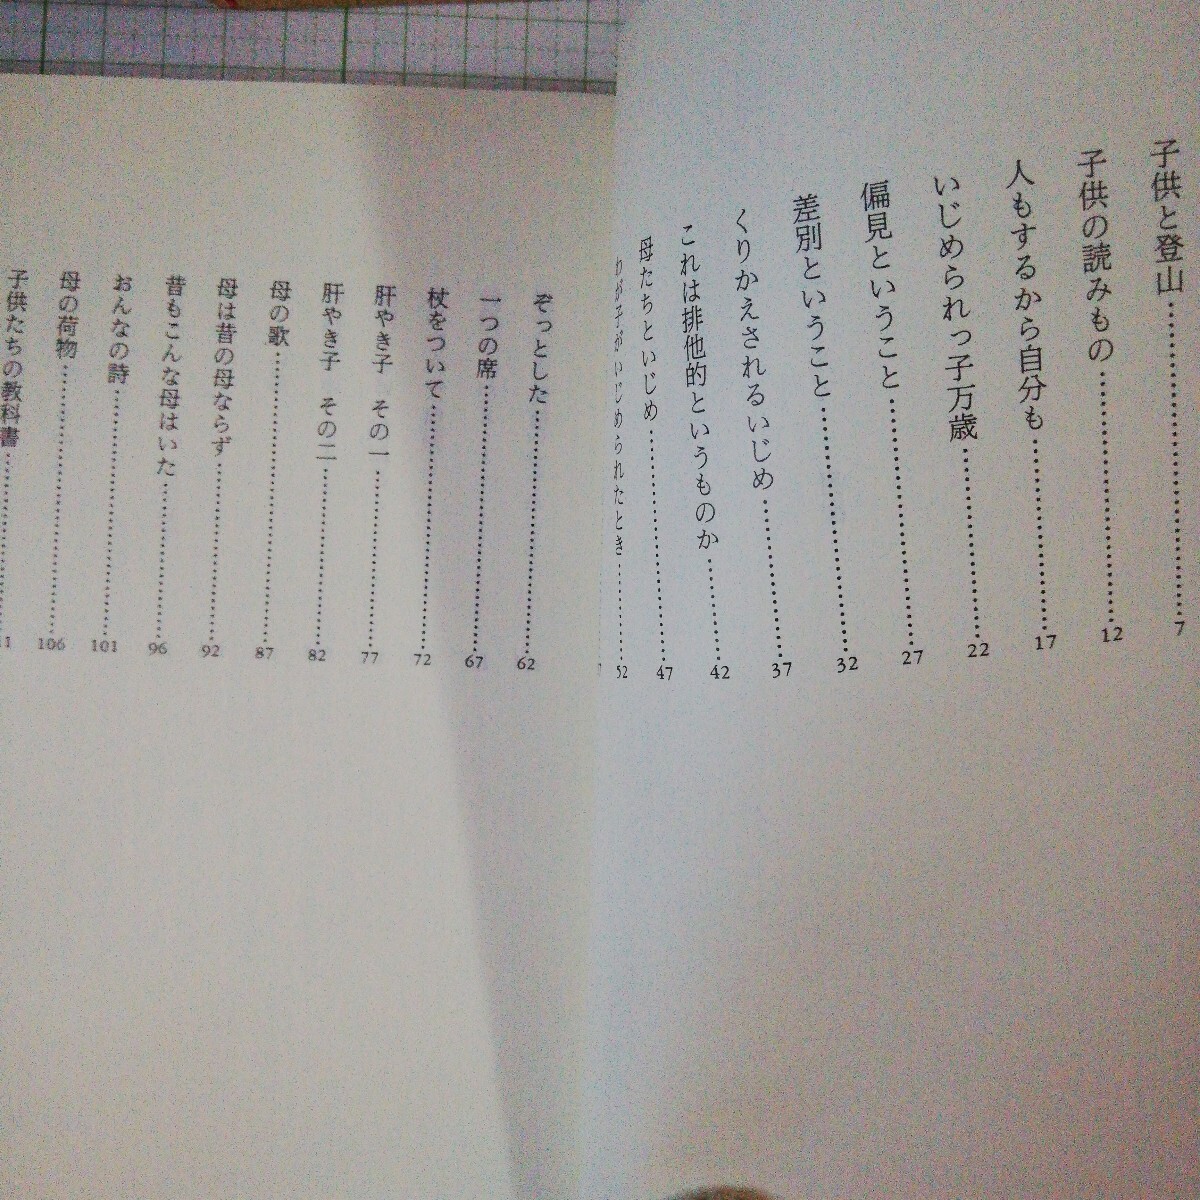 子供と登山……………………7
子供の読みもの……………………12
人もするから自分も……………………17
いじめられっ子万歳……………………22
偏見ということ……………………27
差別ということ……………………32
くりかえされるいじめ……………………37
これは排他的というものか……………………42
母たちといじめ……………………47
わが子がいじめられたとき……………………52
ぞっとした……………………62
一つの席……………………67
杖をついて……………………72
肝やき子　その一……………………77
肝やき子　その二……………………82
母の歌……………………87
母は昔の母ならず……………………92
昔もこんな母はいた……………………96
おんなの詩……………………101
母の荷物……………………106
子供たちの教科書……………………